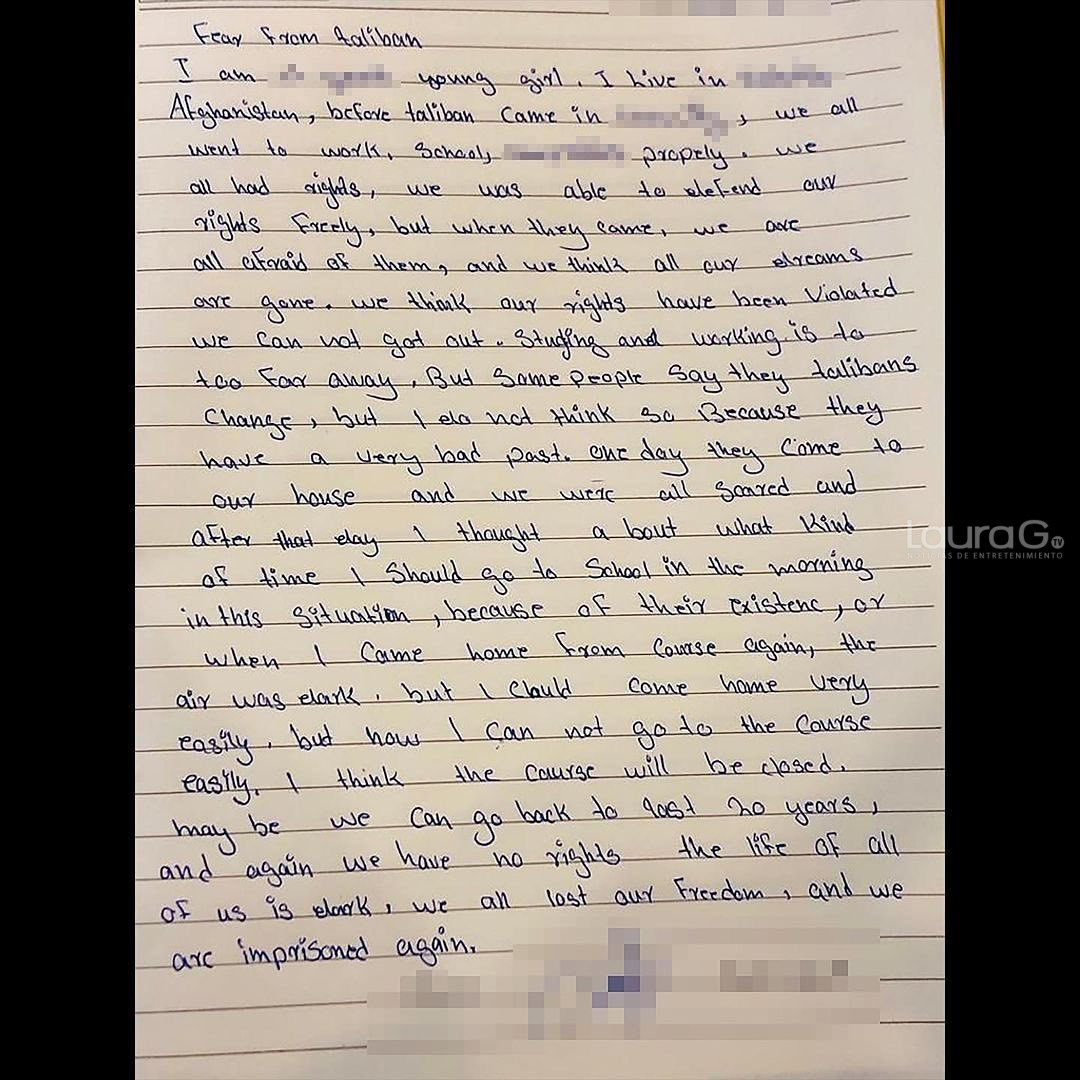 Fear from taliban
I am young girl. I Live in
Afghanistan, before taliban came in , we all
went to work, School, propely. we
all had rights, we was able to defend our
rights freely, but when they came, we are
all afraid of them, and we think all our dreams
are gone. we think our rights have been Violated
we can not got out. Studing and working is to
too far away. But Some people Say they talibans
change, but I do not think so Because they
have a very bad past. one day they Come to
our house and we were all Scared and
after that day I thought a bout what Kind
of time I Should go to School in the morning
in this Situation, because of their existenc, or
when I Came home from Course again, the
air was dark. but I Chuld come home very
easily. but now I can not go to the Course
easily. I think the course will be closed.
may be we can go back to last 20 years,
and again we have no rights the life of all
of us is dark, we all lost our Freedom, and we
are imprisoned again.
LauraG.TV
AS DE ENTRETENIMIENTO